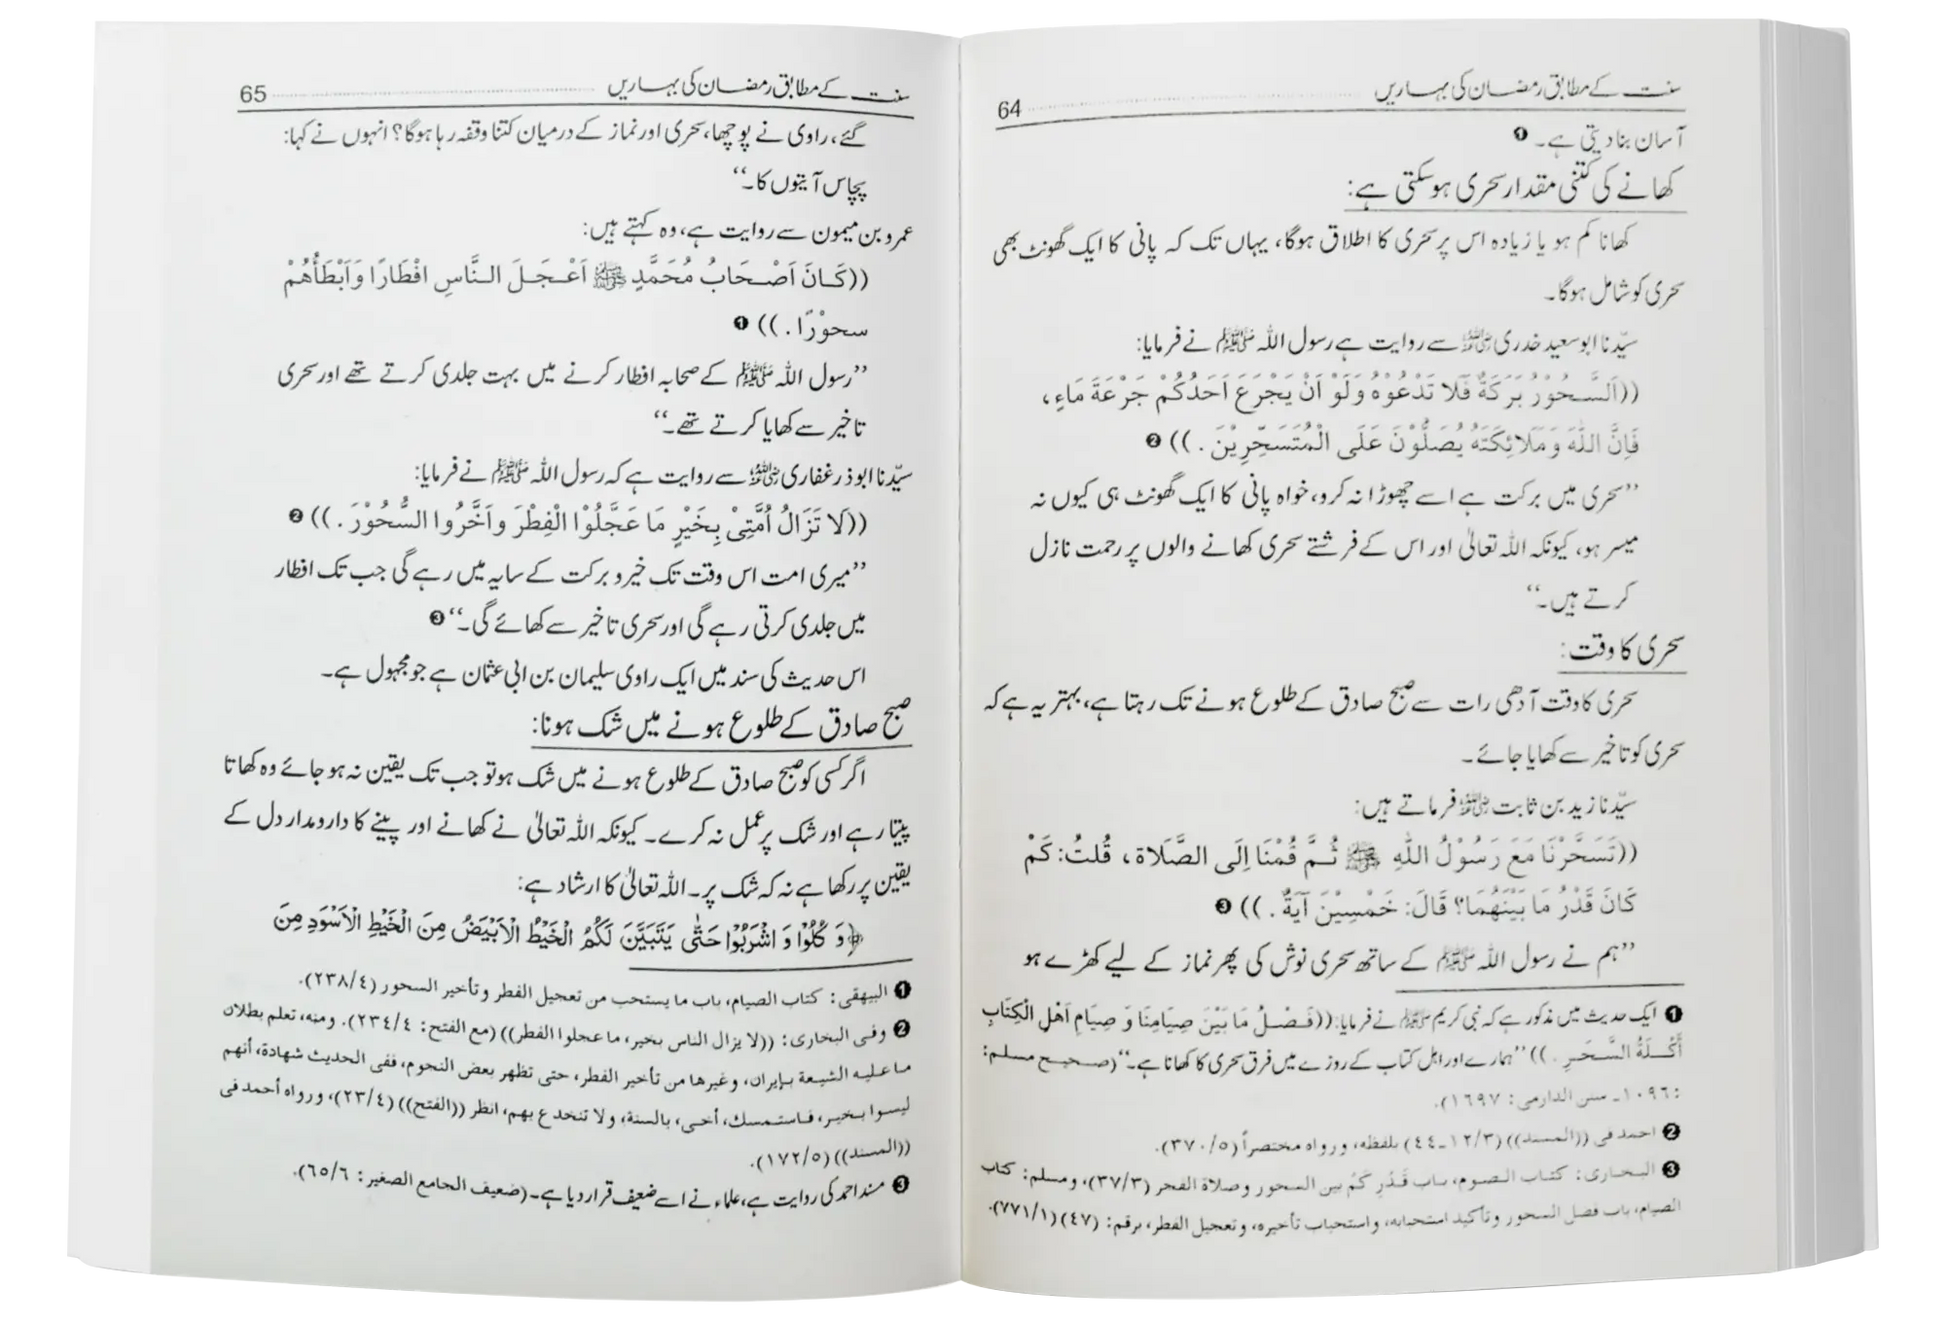 سنت کے مطابق رمضان کی بہاریں ........ 64
آسان بنا دیتی ہے۔ ❶
کھانے کی کتنی مقدار سحری ہوسکتی ہے:
کھانا کم ہو یا زیادہ اس پر سحری کا اطلاق ہوگا، یہاں تک کہ پانی کا ایک گھونٹ بھی
سحری کو شامل ہوگا۔
سیّدنا ابوسعید خدری رضی اللہ عنہ سے روایت ہے رسول اللہ ﷺ نے فرمایا:
((اَلسَّحُوْرُ بَرَكَةٌ فَلا تَدْعُوْهُ وَلَوْ اَنْ يَجْرَعَ اَحَدُكُمْ جَرْعَةَ مَاءٍ،
فَاِنَّ اللّٰهَ وَمَلَائِكَتَهُ يُصَلُّوْنَ عَلَى الْمُتَسَحِّرِيْنَ.)) ❷
’’سحری میں برکت ہے اسے چھوڑا نہ کرو، خواہ پانی کا ایک گھونٹ ہی کیوں نہ
میسر ہو، کیونکہ اللہ تعالیٰ اور اس کے فرشتے سحری کھانے والوں پر رحمت نازل
کرتے ہیں۔‘‘
سحری کا وقت:
سحری کا وقت آدھی رات سے صبح صادق کے طلوع ہونے تک رہتا ہے، بہتر یہ ہے کہ
سحری کو تاخیر سے کھایا جائے۔
سیّدنا زید بن ثابت رضی اللہ عنہ فرماتے ہیں:
((تَسَحَّرْنَا مَعَ رَسُوْلُ اللّٰهِ ﷺ ثُمَّ قُمْنَا اِلَى الصَّلَاة، قُلتُ: كَمْ
كَانَ قَدْرُ مَا بَيْنَهُمَا؟ قَالَ: خَمْسِيْنَ آيَةٌ.)) ❸
’’ہم نے رسول اللہ ﷺ کے ساتھ سحری نوش کی پھر نماز کے لیے کھڑے ہو
❶ ایک حدیث میں مذکور ہے کہ نبی کریم ﷺ نے فرمایا: ((فَصْلُ مَا بَيْنَ صِيَامِنَا وَ صِيَامِ اَهْلِ الْكِتَابِ
أَكْلَةُ السَّحَرِ.)) ’’ہمارے اور اہل کتاب کے روزے میں فرق سحری کا کھانا ہے۔‘‘ (صحیح مسلم:
:۱۰۹٦۔ سنن الدارمی: ۱٦۹۷)۔
❷ احمد فی ((المسند)) (۱۲/۳۔٤٤) بلفظه، ورواه مختصراً (۳۷۰/٥)۔
❸ البخاری: کتاب الصوم، باب قَدْرِ كَمْ بين السحور وصلاة الفجر (۳۷/۳)، ومسلم: کتاب
الصیام، باب فضل السحور وتأکید استحبابه، واستحباب تأخیره، وتعجیل الفطر، برقم: (٤۷) (۷۷۱/۱)۔
سنت کے مطابق رمضان کی بہاریں ........ 65
گئے، راوی نے پوچھا، سحری اور نماز کے درمیان کتنا وقفہ رہا ہوگا؟ انہوں نے کہا:
پچاس آیتوں کا۔‘‘
عمرو بن میمون سے روایت ہے، وہ کہتے ہیں:
((كَانَ اَصْحَابُ مُحَمَّدٍ ﷺ اَعْجَلَ النَّاسِ افْطَارًا وَاَبْطَأُهُمْ
سحوْرًا.)) ❶
’’رسول اللہ ﷺ کے صحابہ افطار کرنے میں بہت جلدی کرتے تھے اور سحری
تاخیر سے کھایا کرتے تھے۔‘‘
سیّدنا ابوذر غفاری رضی اللہ عنہ سے روایت ہے کہ رسول اللہ ﷺ نے فرمایا:
((لَا تَزَالُ اُمَّتِىْ بِخَيْرٍ مَا عَجَّلُوْا الْفِطْرَ وأَخَّرُوا السُّحُوْرَ.)) ❷
’’میری امت اس وقت تک خیر و برکت کے سایہ میں رہے گی جب تک افطار
میں جلدی کرتی رہے گی اور سحری تاخیر سے کھائے گی۔‘‘ ❸
اس حدیث کی سند میں ایک راوی سلیمان بن ابی عثمان ہے جو مجہول ہے۔
صبح صادق کے طلوع ہونے میں شک ہونا:
اگر کسی کو صبح صادق کے طلوع ہونے میں شک ہو تو جب تک یقین نہ ہو جائے وہ کھاتا
پیتا رہے اور شک پر عمل نہ کرے۔ کیونکہ اللہ تعالیٰ نے کھانے اور پینے کا دارومدار دل کے
یقین پر رکھا ہے نہ کہ شک پر۔ اللہ تعالیٰ کا ارشاد ہے:
﴿وَ كُلُوْا وَ اشْرَبُوْا حَتّٰى يَتَبَيَّنَ لَكُمُ الْخَيْطُ الْاَبْيَضُ مِنَ الْخَيْطِ الْاَسْوَدِ مِنَ
❶ البيهقی: کتاب الصیام، باب ما یستحب من تعجیل الفطر وتأخیر السحور (۲۳۸/٤)۔
❷ وفی البخاری: ((لا یزال الناس بخیر، ما عجلوا الفطر)) (مع الفتح: ۲۳٤/٤)۔ ومنه، تعلم بطلان
ما علیه الشیعة بإیران، وغیرها من تأخیر الفطر، حتی تظهر بعض النجوم، ففی الحدیث شهادة، أنهم
لیسوا بخیر، فاستمسك، أخی، بالسنة، ولا تنخدع بهم، انظر ((الفتح)) (۲۳/٤)، ورواه أحمد فی
((المسند)) (۱۷۲/٥)۔
❸ مسند احمد کی روایت ہے، علماء نے اسے ضعیف قرار دیا ہے۔ (ضعیف الجامع الصغیر: ٦٥/٦)۔